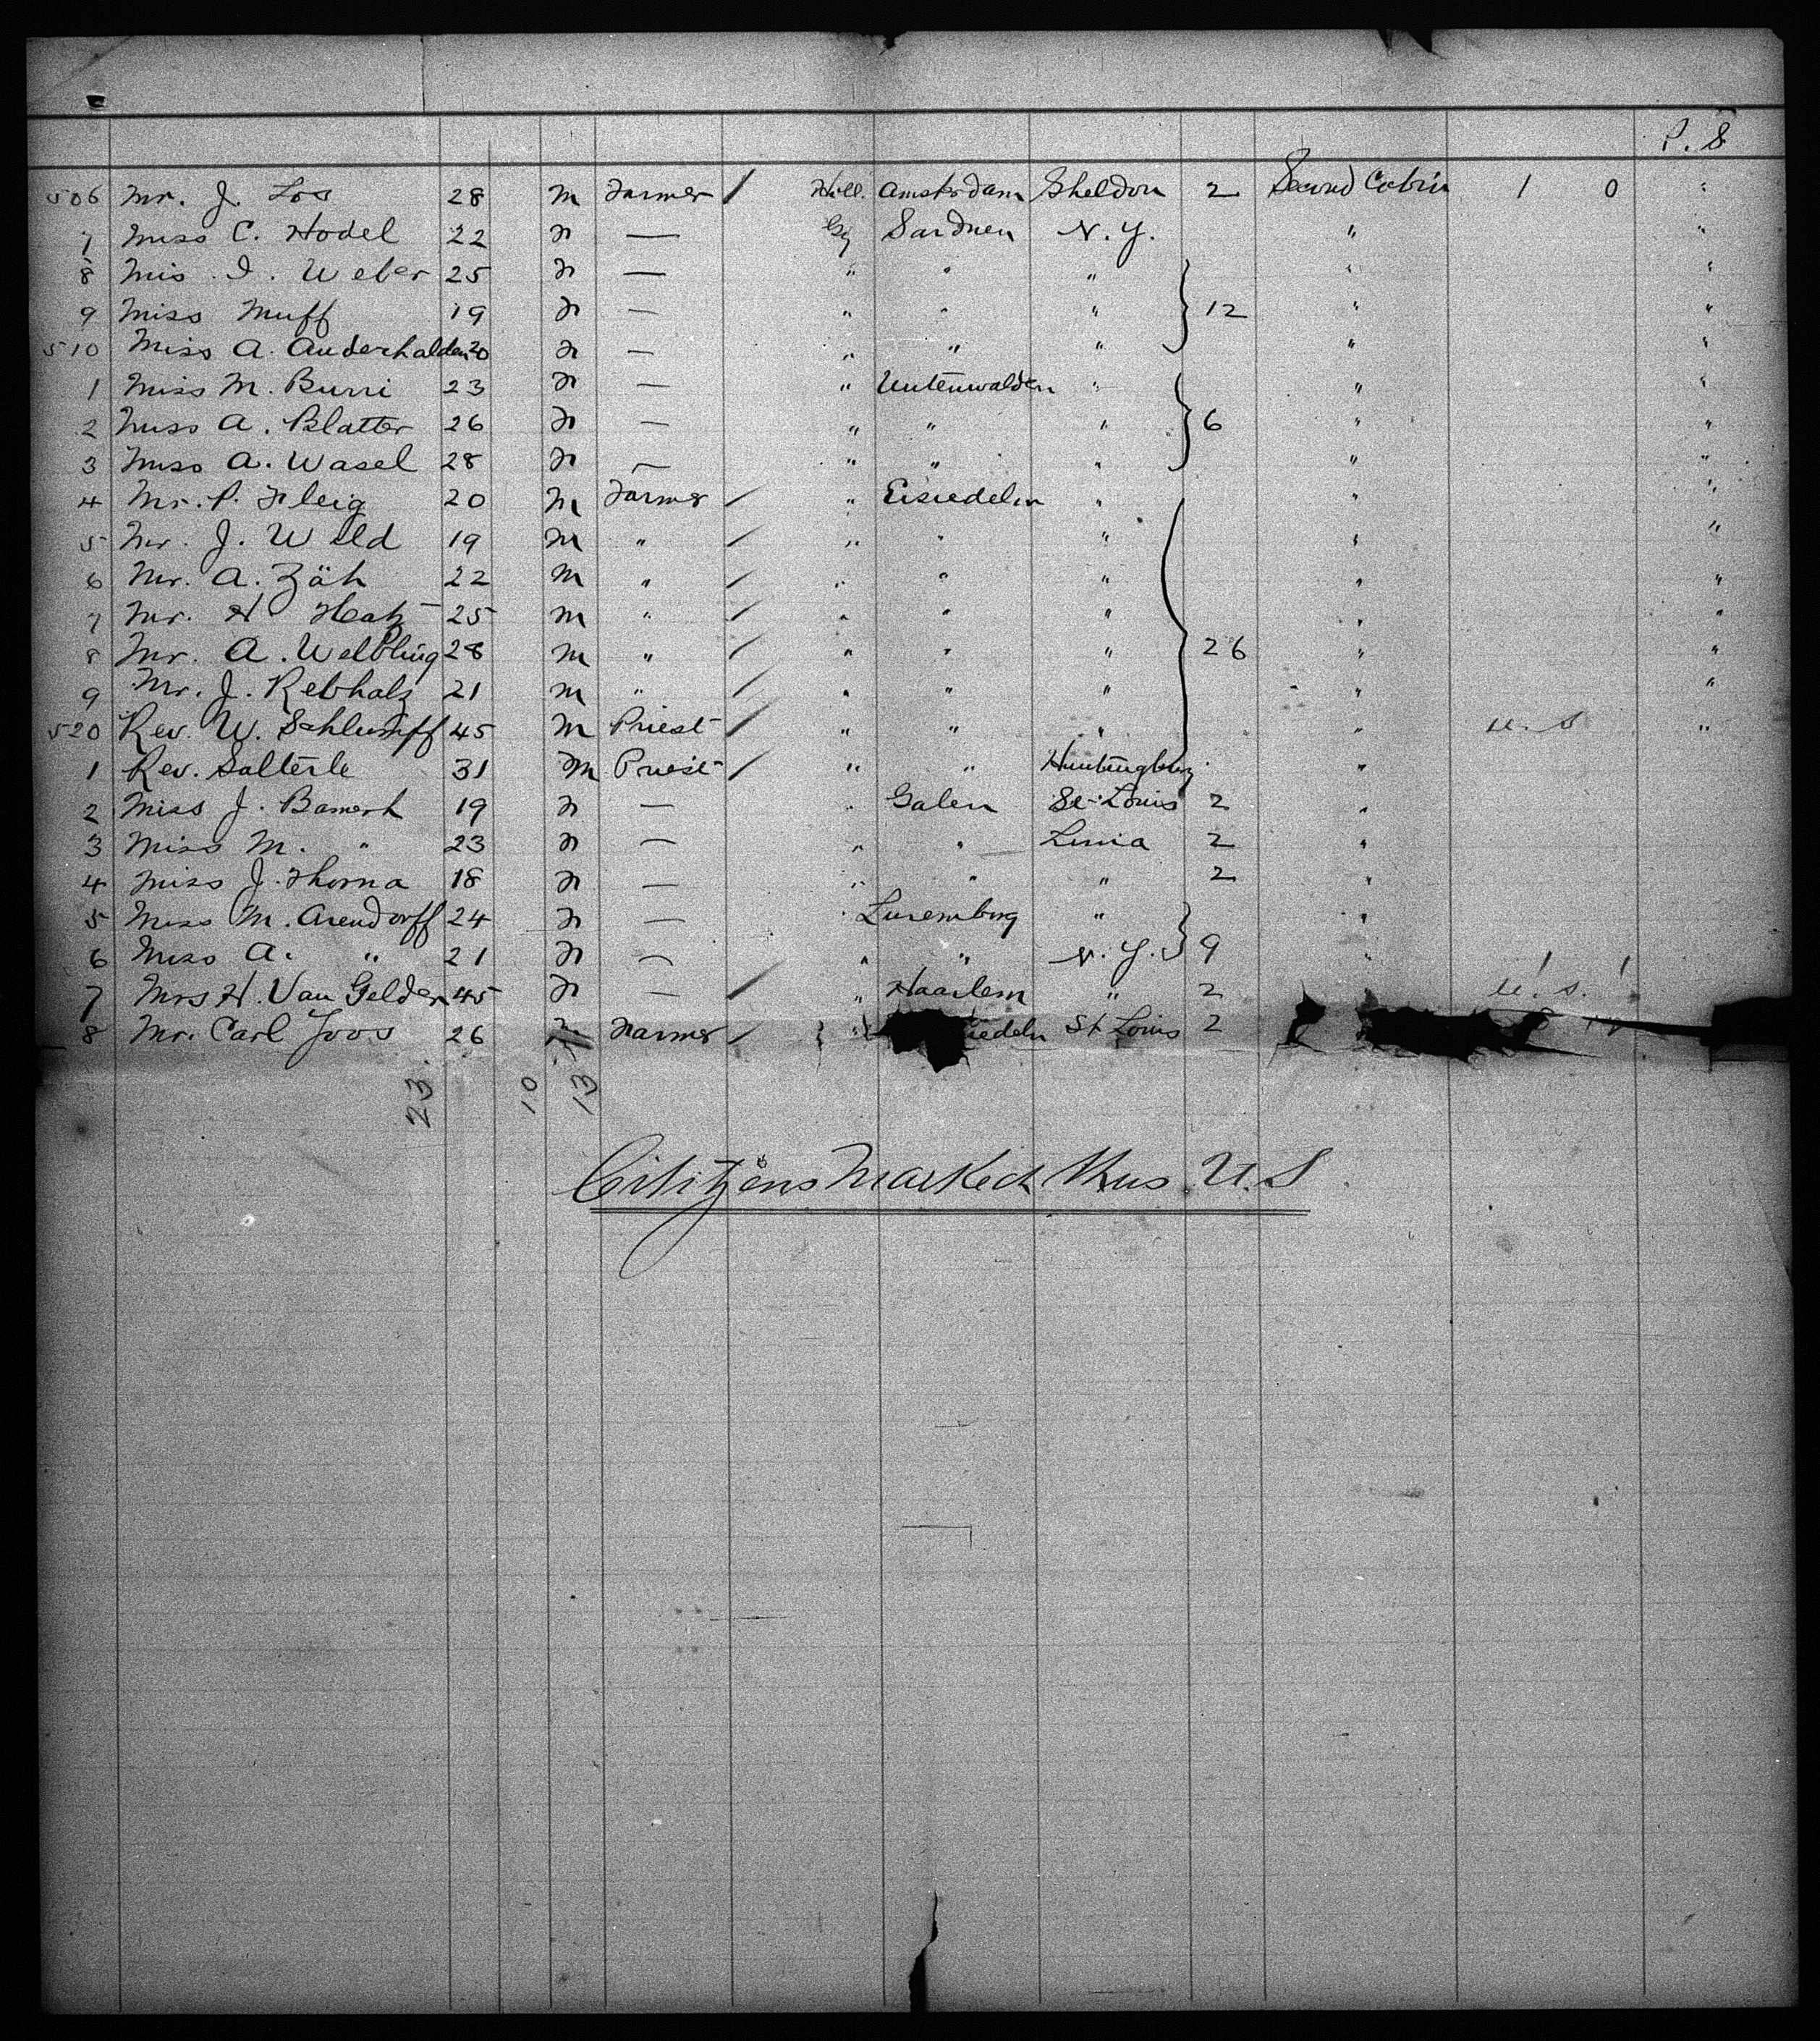 P. 8
506 Mr. J. Los 28 M Farmer / Holl. Amsterdam Sheldon 2 Second Cabin 1 0 "
7 Miss C. Hodel 22 F — Gy Sardnen N. Y. " "
8 Mis. I. Weber 25 F — " " " " "
9 Miss Muff 19 F — " " " } 12 " "
510 Miss A. Anderhalden 20 F — " " " " "
1 Miss M. Burri 23 F — " Untenwalden " " "
2 Miss A. Blatter 26 F — " " " } 6 " "
3 Miss A. Wasel 28 F — " " " " "
4 Mr. P. Fleig 20 M Farmer / " Eisiedeln " " "
5 Mr. J. Wild 19 M " / " " " " "
6 Mr. A. Zäh 22 M " / " " " " "
7 Mr. H Heatz 25 M " / " " " " "
8 Mr. A. Welbling 28 M " / " " " } 26 " "
9 Mr. J. Rebhalz 21 M " / " " " " "
520 Rev. W. Schlumpff 45 M Priest / " " " " U. S "
1 Rev. Salterle 31 M Priest / " " Huntingburg "
2 Miss J. Bamert 19 F — " Galen St. Louis 2 "
3 Miss M. " 23 F — " " Linia 2 "
4 Miss J. Thoma 18 F — " " " 2 "
5 Miss M. Arendorff 24 F — " Luxemburg " "
6 Miss A. " 21 F — " " N. Y. } 9 "
7 Mrs H. Van Gelder 45 F — / " Haarlem " 2 U. S.
8 Mr. Carl Joos 26 Farmer / " iedeln St Louis 2
23. 10 13
Citizens Marked Thus U. S